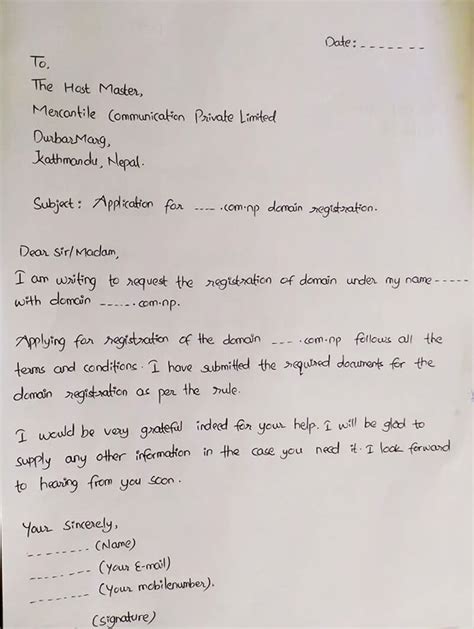 Date: _ _ _ _ _ _ _
To,
The Host Master,
Mercantile Communication Private Limited
DurbarMarg,
Kathmandu, Nepal.
Subject: Application for ---- .com.np domain registration.
Dear Sir/Madam,
I am writing to request the registration of domain under my name -----
with domain ------.com.np.
Applying for registration of the domain --- .com.np follows all the
terms and conditions. I have submitted the required documents for the
domain registration as per the rule.
I would be very grateful indeed for your help. I will be glad to
supply any other information in the case you need it. I look forward
to hearing from you soon.
Your Sincerely,
_ _ _ _ _ _ _ _ (Name)
_ _ _ _ _ _ _ _ (Your E-mail)
_ _ _ _ _ _ _ _ (Your mobilenumber).
(signature)